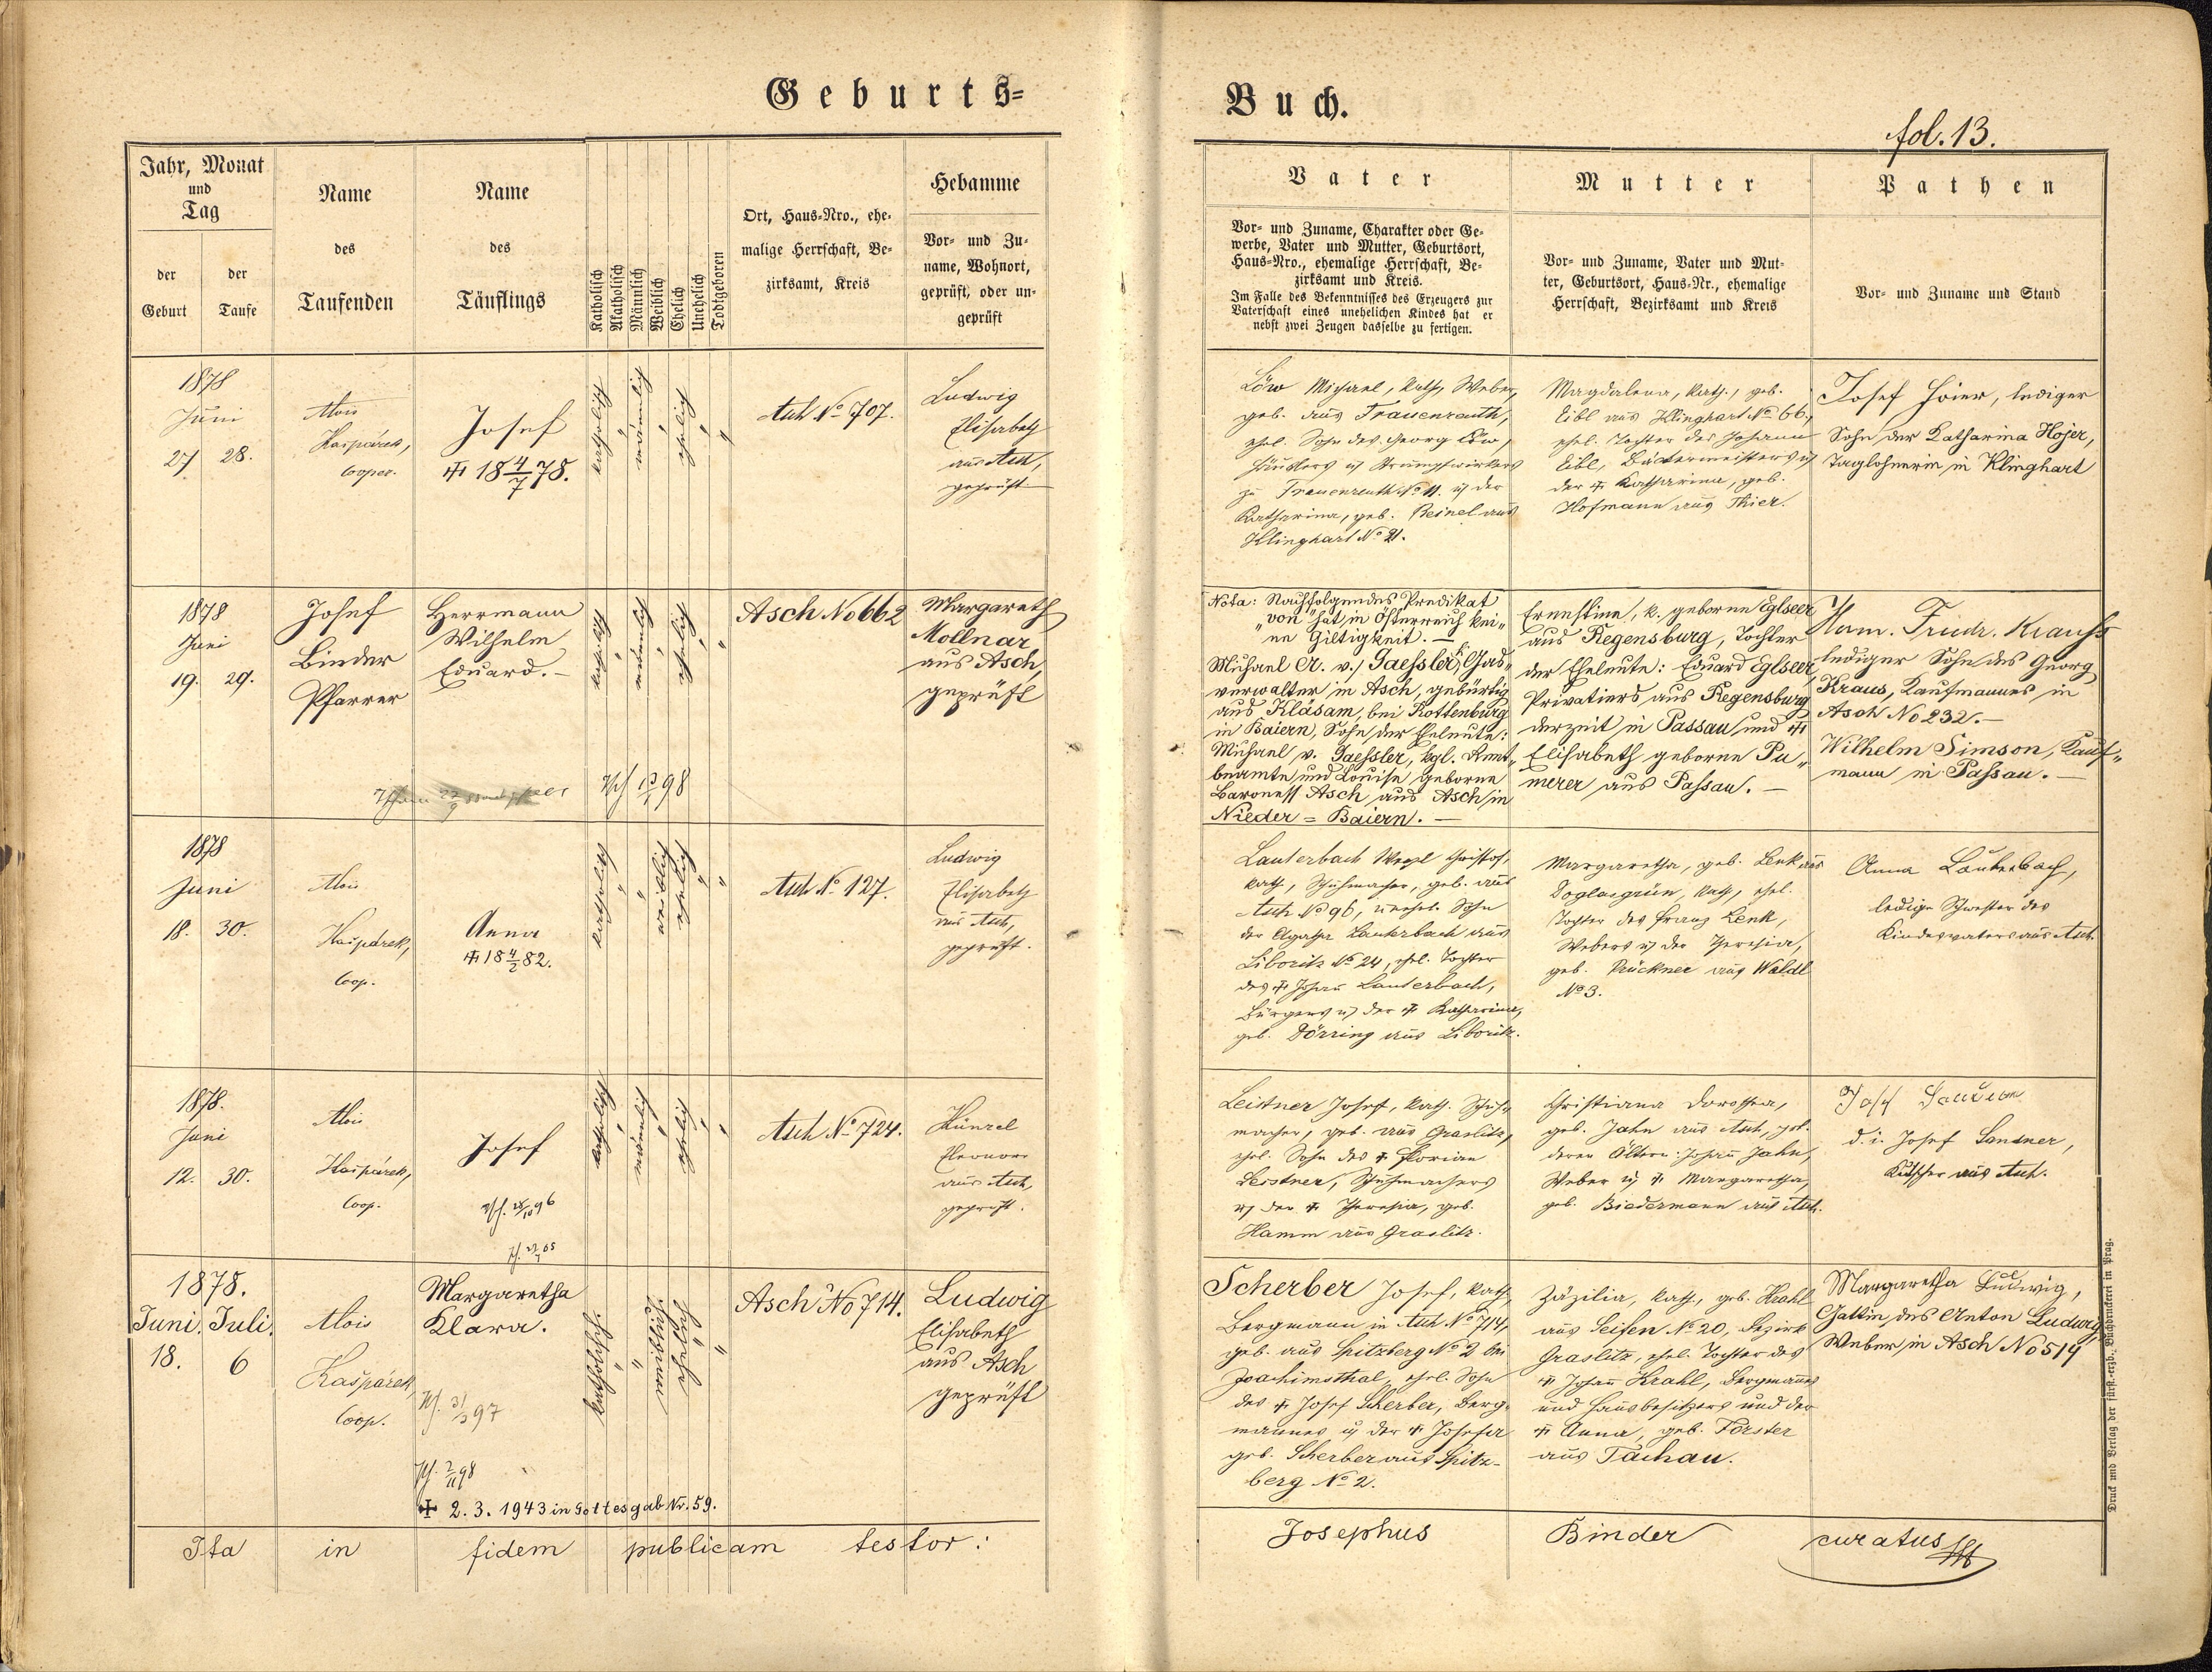 Geburts=
Buch.
fol. 13.
Jahr, Monat
und
Tag
der
Geburt
der
Taufe
Name
des
Taufenden
Name
des
Täuflings
Katholisch
Akatholisch
Männlich
Weiblich
Ehelich
Unehelich
Todtgeboren
Ort, Haus-Nro., ehe-
malige Herrschaft, Be-
zirksamt, Kreis
Hebamme
Vor- und Zu-
name, Wohnort,
geprüft, oder un-
geprüft
Vater
Vor- und Zuname, Charakter oder Ge-
werbe, Vater und Mutter, Geburtsort,
Haus-Nro., ehemalige Herrschaft, Be-
zirksamt und Kreis.
Im Falle des Bekenntnisses des Erzeugers zur
Vaterschaft eines unehelichen Kindes hat er
nebst zwei Zeugen dasselbe zu fertigen.
Mutter
Vor- und Zuname, Vater und Mut-
ter, Geburtsort, Haus-Nr., ehemalige
Herrschaft, Bezirksamt und Kreis
Pathen
Vor- und Zuname und Stand
1878
Juni
27 28.
Alois
Kašpárek,
Cooper.
Josef
✝ 18 4/7 78.
katholisch
"
männlich
"
ehelich
"
"
Asch No 707.
Ludwig
Elisabeth
aus Asch,
geprüft
Löw Michael, kath., Weber,
geb. aus Frauenreuth,
ehel. Sohn des Georg Löw,
Häuslers u Strumpfwirkers
zu Frauenreuth No 11. u der
Katharina, geb. Beinel aus
Klinghart No 21.
Magdalena, kath., geb.
Eibl aus Klinghart No 66.,
ehel. Tochter des Johann
Eibl, Bäckermeisters u
der ✝ Katharina, geb.
Hofmann aus Thier.
Josef Hoier, lediger
Sohn der Katharina Hojer,
Taglöhnerin in Klinghart
1878
Juni
19. 29.
Josef
Binder
Pfarrer
Herrmann
Wilhelm
Eduard. –
katholisch
"
männlich
"
ehelich
"
"
Asch No 662
Margareth
Mollnar
aus Asch,
geprüft
Nota: Nachfolgendes Predikat
"von" hat in Österreich kei-
ne Giltigkeit. –
Michael A. v. Gaessler, k. Gas-
verwalter in Asch, gebürtig
aus Kläsam, bei Rottenburg
in Baiern, Sohn der Eheleute:
Michael v. Gaessler, kgl. Rent-
beamte und Louise geborne
Baroness Asch aus Asch in
Nieder = Baiern. –
Ernestine, k. geborne Eglseer
aus Regensburg, Tochter
der Eheleute: Eduard Eglseer,
Privatiers aus Regensburg
derzeit in Passau und ✝
Elisabeth geborne Pu-
merer aus Passau. –
Ham. Friedr. Krauss
lediger Sohn des Georg
Kraus, Kaufmannes in
Asch No 232. –
Wilhelm Simson, Kauf-
mann in Passau. –
1878
Juni
18. 30.
Alois
Kašpárek,
Coop.
Anna
✝ 18 4/2 82.
katholisch
"
"
weiblich
ehelich
"
"
Asch No 127.
Ludwig
Elisabeth
aus Asch,
geprüft.
Lauterbach Christof,
kath., Schuhmacher, geb. aus
Asch No 96, unehel. Sohn
der Agatha Lauterbach aus
Liboritz No 24, ehel. Tochter
des ✝ Johann Lauterbach,
Bürgers u der ✝ Katharina,
geb. Dörring aus Liboritz.
Margaretha, geb. Lenk aus
Doglasgrün, kath., ehel.
Tochter des Franz Lenk,
Webers u der Theresia,
geb. Prückner aus Waldl
No 3.
Anna Lauterbach,
ledige Schwester des
Kindesvaters aus Asch.
1878.
Juni
12. 30.
Alois
Kašpárek,
Coop.
Josef
katholisch
"
männlich
"
ehelich
"
"
Asch No 724.
Künzel
Eleonore
aus Asch,
geprüft.
Leistner Josef, kath. Schuh-
macher, geb. aus Graslitz,
ehel. Sohn des ✝ Florian
Leistner, Schuhmachers
u der ✝ Theresia, geb.
Hamm aus Graslitz.
Christiana Dorothea,
geb. Jahn aus Asch, prot.
deren Ältern: Johann Jahn,
Weber u ✝ Margaretha,
geb. Biedermann aus Asch.
Josef Sandner
d. i. Josef Sandner,
Kutscher aus Asch.
1878.
Juni. Juli.
18. 6
Alois
Kašpárek,
Coop.
Margaretha
Klara.
✝ 2. 3. 1943 in Gottesgab Nr. 59.
katholisch.
"
"
weiblich
ehelich
"
"
Asch No 714.
Ludwig
Elisabeth
aus Asch
geprüft
Scherber Josef, kath.,
Bergmann in Asch No 714,
geb. aus Spitzberg No 2 bei
Joachimsthal, ehel. Sohn
des ✝ Josef Scherber, Berg-
mannes u der ✝ Josefa
geb. Scherber aus Spitz-
berg No 2.
Zäzilia, kath., geb. Krahl
aus Seifen No 20, Bezirk
Graslitz, ehel. Tochter des
✝ Johann Krahl, Bergmanns
und Hausbesitzers und der
✝ Anna, geb. Forster
aus Tachau.
Margaretha Ludwig,
Gattin des Anton Ludwig,
Weber in Asch No 519
Ita in fidem publicam testor:
Josephus Binder curatus
Druck und Verlag der fürst.-erzb. Buchdruckerei in Prag.